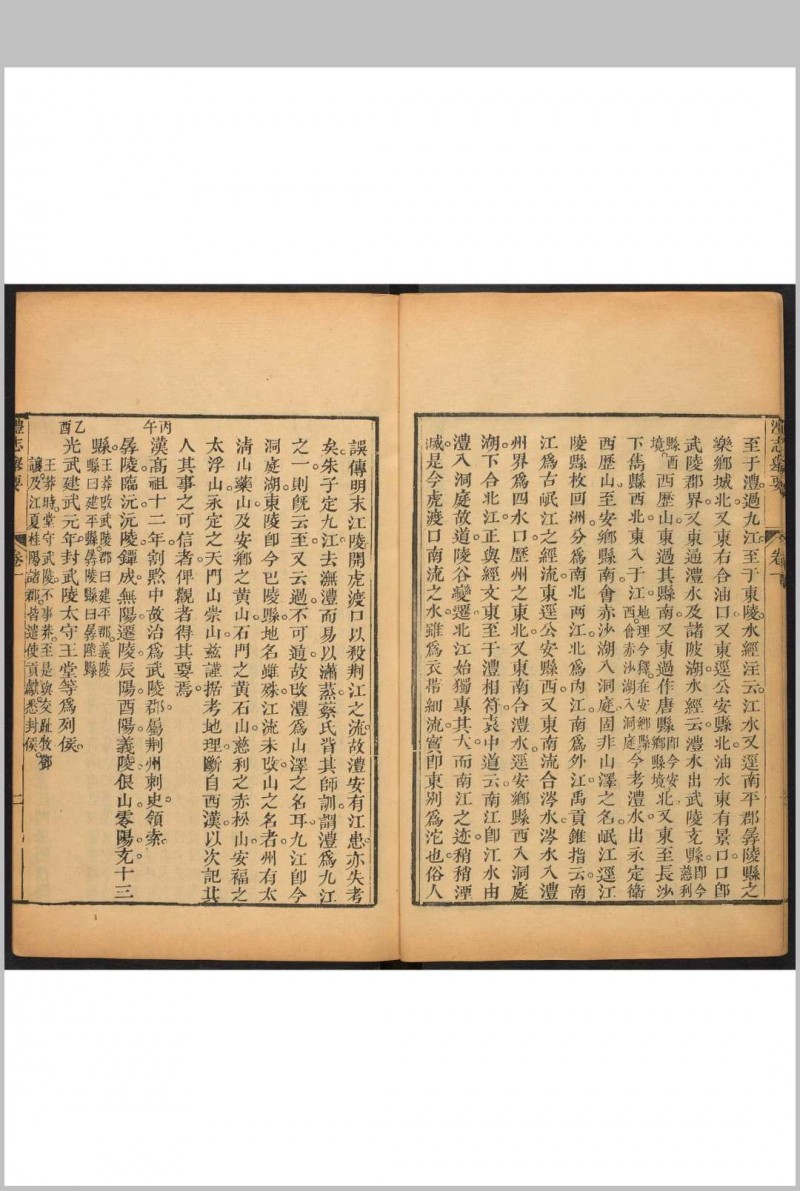 澧志舉要
卷一
至于澧過九江至于東陵水經注云江水又逕南平郡孱陵縣之
樂鄉城北又東右合油口又東逕公安縣北油水東有景口口卽
武陵郡界又東通澧水及諸陂湖水經云澧水出武陵充縣卽今慈利
縣酉境西歷山東過其縣南又東過作唐縣卽今安鄉縣境北又東至長沙
下雋縣西北東入于江地理今釋在安鄉縣西會赤沙湖入洞庭今考澧水出永定衞
西歷山至安鄉縣南會赤沙湖入洞庭固非山澤之名岷江逕江
陵縣枚回洲分爲南北兩江北爲內江南爲外江禹貢錐指云南
江爲古岷江之經流東逕公安縣西又東南流合涔水涔水入澧
州界爲四水口歷州之東北又東南合澧水逕安鄉縣西入洞庭
湖下合北江正與經文東至于澧相符袁中道云南江卽江水由
澧入洞庭故道陵谷變遷北江始獨專其大而南江之迹稍稍湮
滅是今虎渡口南流之水雖爲衣帶細流實卽東別爲沱也俗人
誤傳明末江陵開虎渡口以殺荆江之流故澧安有江患亦失考
矣朱子定九江去潕澧而易以瀟蒸蔡氏背其師訓謂澧爲九江
之一則旣云至又云過不可通故改澧爲山澤之名耳九江卽今
洞庭湖東陵卽今巴陵縣地名雖殊江流未改山之名者州有太
淸山藥山及安鄉之黃山石門之黃石山慈利之赤松山安福之
太浮山永定之天門山崇山茲謹據考地理斷自西漢以次記其
人其事之可信者俾觀者得其要焉
丙午
漢高祖十二年割黔中故治爲武陵郡屬荆州刺史領索
孱陵臨沅沅陵鐔成無陽遷陵辰陽酉陽義陵佷山零陽充十三
縣王莽改武陵郡曰建平郡義陵縣曰建平縣孱陵縣曰孱陸縣
乙酉
光武建武元年封武陵太守王堂等爲列侯
王莽時堂守武陵不事莽至是與交趾牧鄧讓及江夏桂陽諸郡皆遣使貢獻悉封侯
澧志舉要
卷一
二